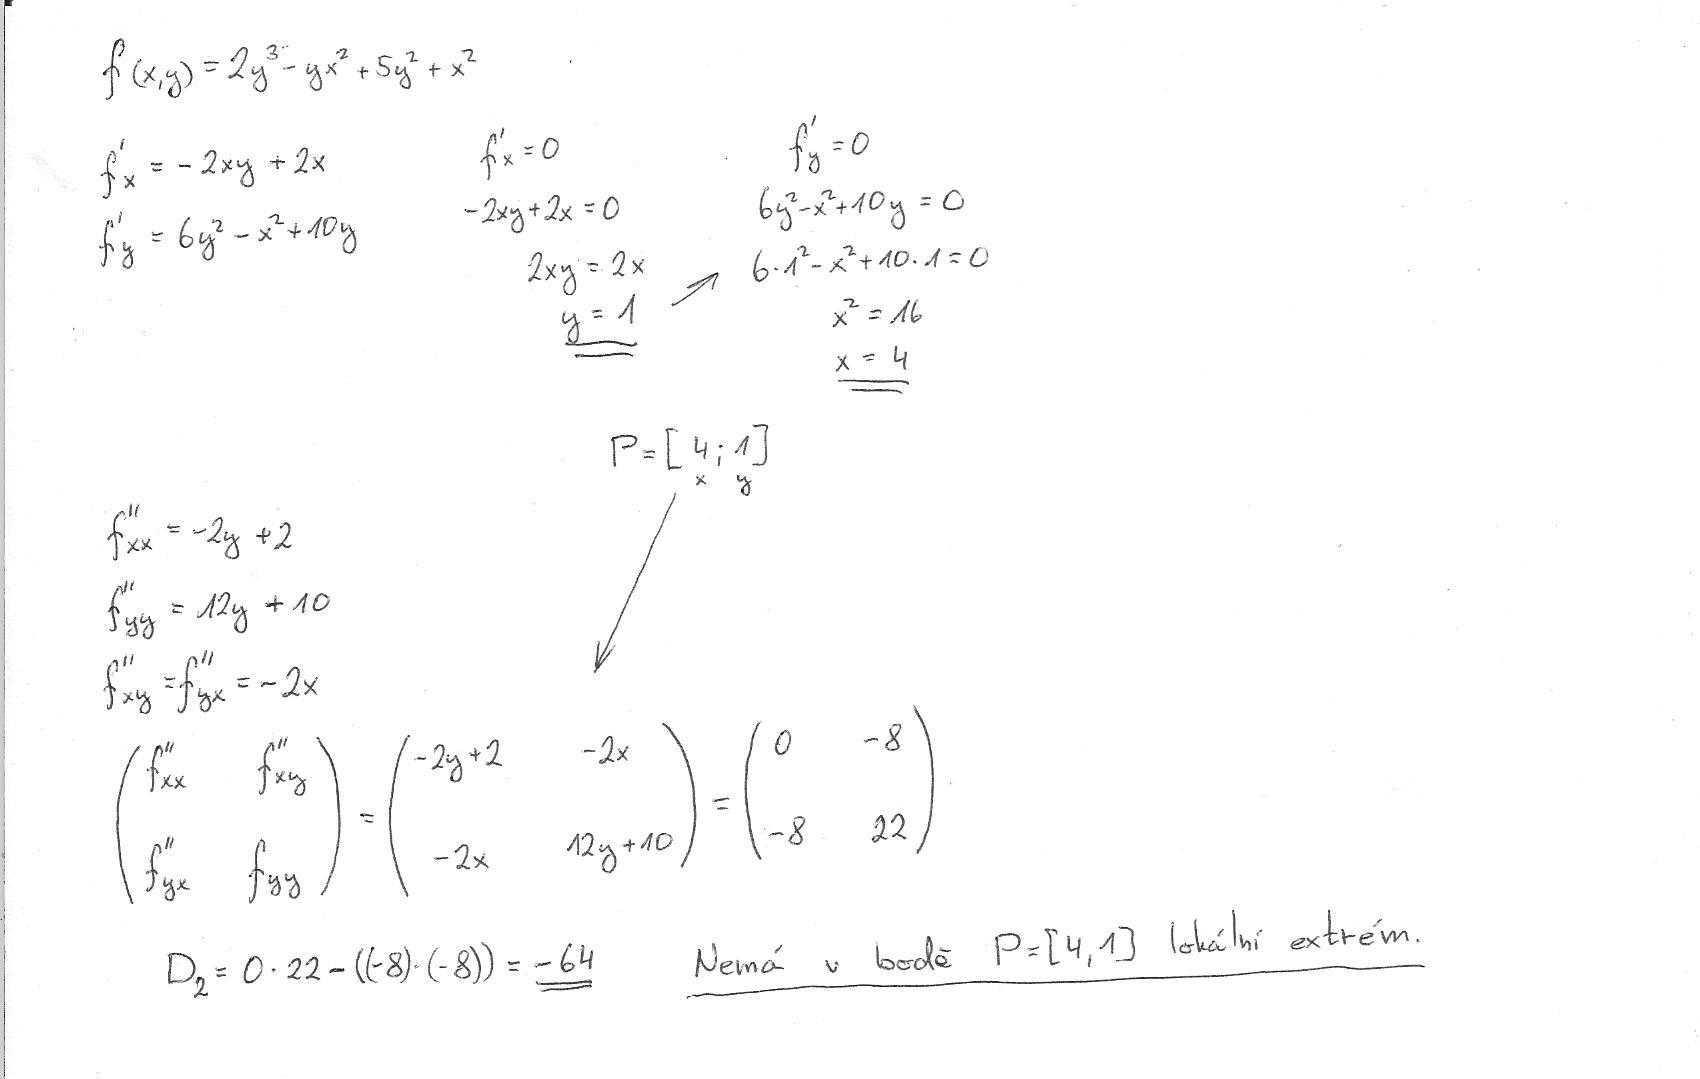 f(x,y) = 2y³ - yx² + 5y² + x²
f'x = -2xy + 2x
f'y = 6y² - x² + 10y
f'x = 0
-2xy + 2x = 0
2xy = 2x
y = 1
f'y = 0
6y² - x² + 10y = 0
6·1² - x² + 10·1 = 0
x² = 16
x = 4
P = [4; 1]
x y
f''xx = -2y + 2
f''yy = 12y + 10
f''xy = f''yx = -2x
( f''xx f''xy ) = ( -2y+2 -2x ) = ( 0 -8 )
( f''yx fyy ) ( -2x 12y+10 ) ( -8 22 )
D₂ = 0·22 - ((-8)·(-8)) = -64 Nemá v bodě P=[4,1] lokální extrém.